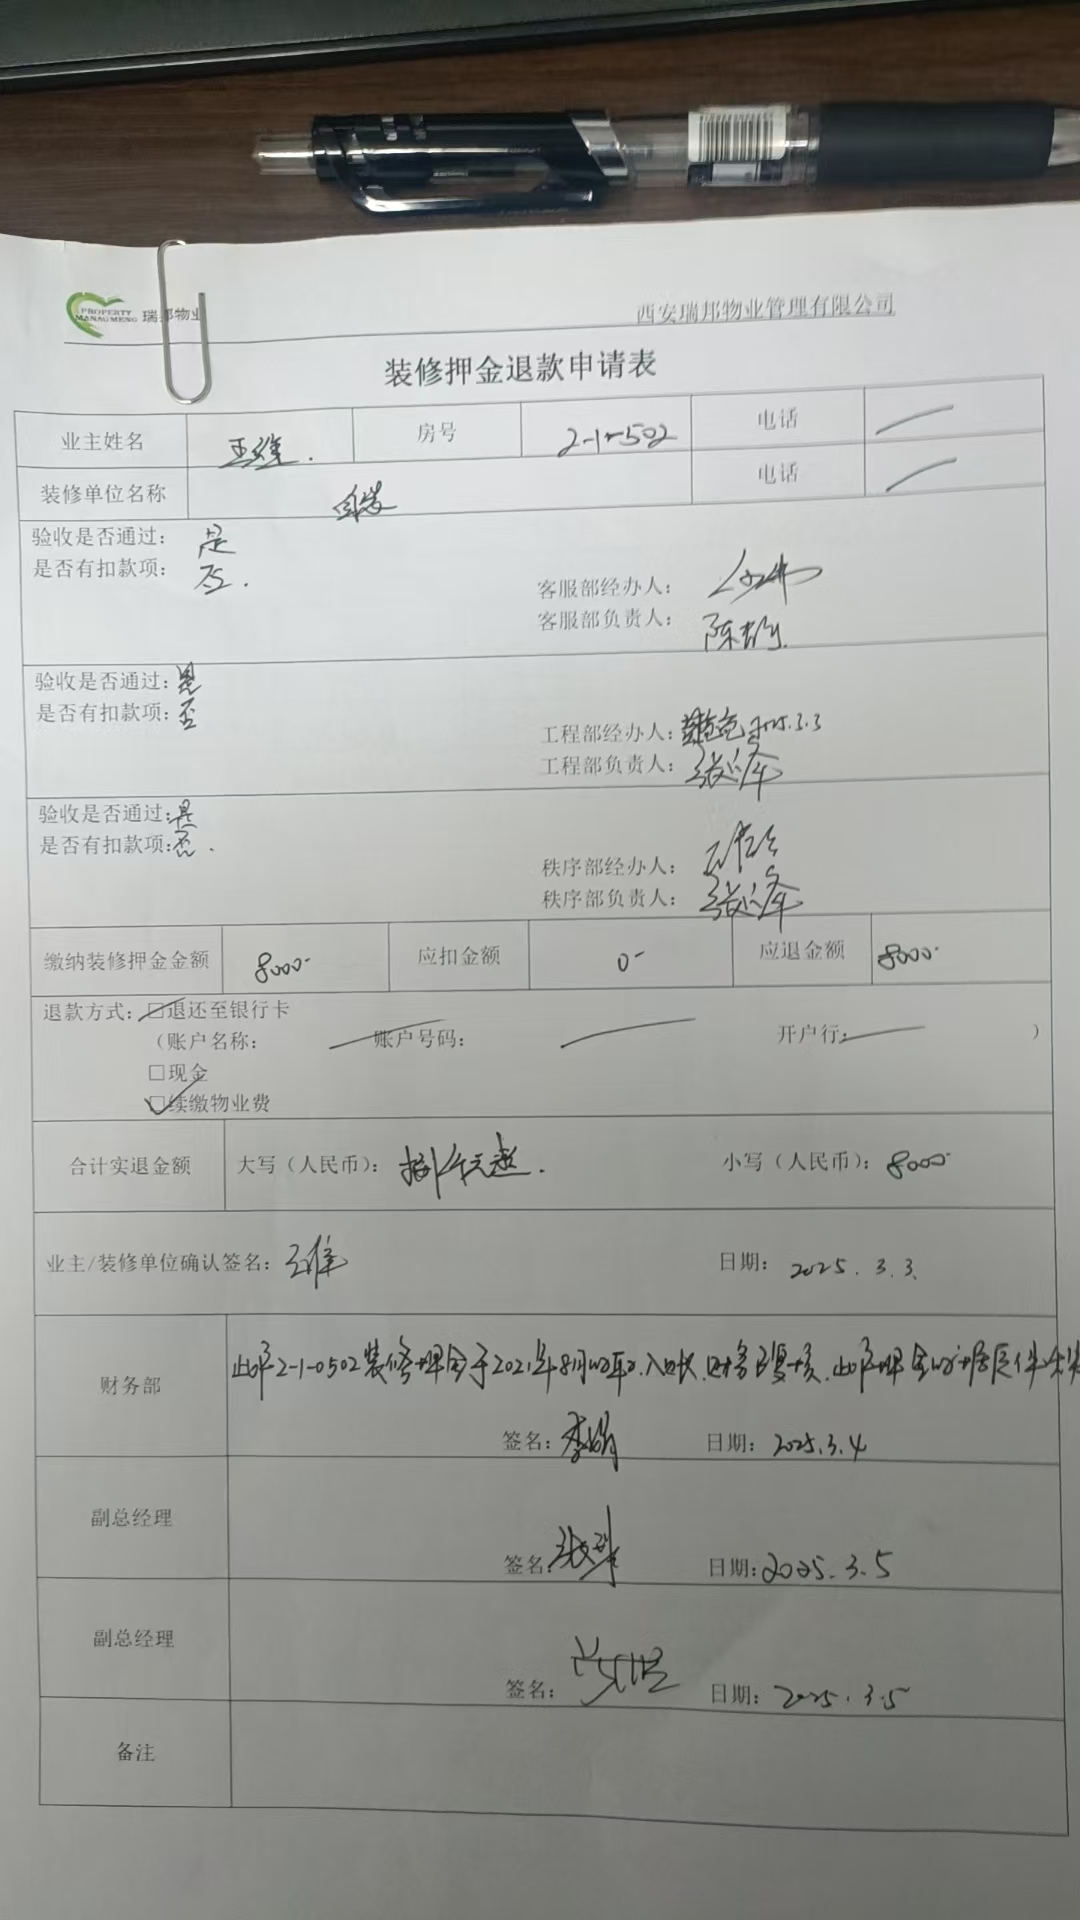 PROPERTY
MANAGMENG 瑞邦物业
西安瑞邦物业管理有限公司
装修押金退款申请表
业主姓名 房号 2-1-502 电话
装修单位名称 自装 电话
验收是否通过: 是
是否有扣款项: 否.
客服部经办人:
客服部负责人: 陈
验收是否通过: 是
是否有扣款项: 否
工程部经办人: 2025.3.3
工程部负责人: 张
验收是否通过: 是
是否有扣款项: 否.
秩序部经办人:
秩序部负责人: 张
缴纳装修押金金额 8000- 应扣金额 0- 应退金额 8000-
退款方式: □退还至银行卡
(账户名称: 账户号码: 开户行: )
□现金
□续缴物业费
合计实退金额 大写(人民币): 捌仟元整. 小写(人民币): 8000-
业主/装修单位确认签名: 日期: 2025.3.3.
财务部 此户2-1-0502装修押金于2021年8月 入账,财务已复核,此户押金
签名: 李娟 日期: 2025.3.4
副总经理
签名: 张 日期: 2025.3.5
副总经理
签名: 日期: 2025.3.5
备注